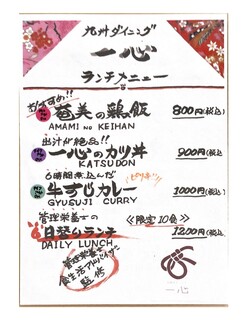 九州ダイニング
一心
ランチメニュー
おすすめ!!
奄美の鶏飯 800円(税込)
AMAMI no KEIHAN
出汁が絶品!!
一心のカツ丼 900円(税込)
KATSUDON
6時間煮込んだ
牛すじカレー 1000円(税込)
GYUSUJI CURRY
管理栄養士の 《限定10食》
日替りランチ 1200円(税込)
DAILY LUNCH
管理栄養士
食生活アドバイザー
監修
一心